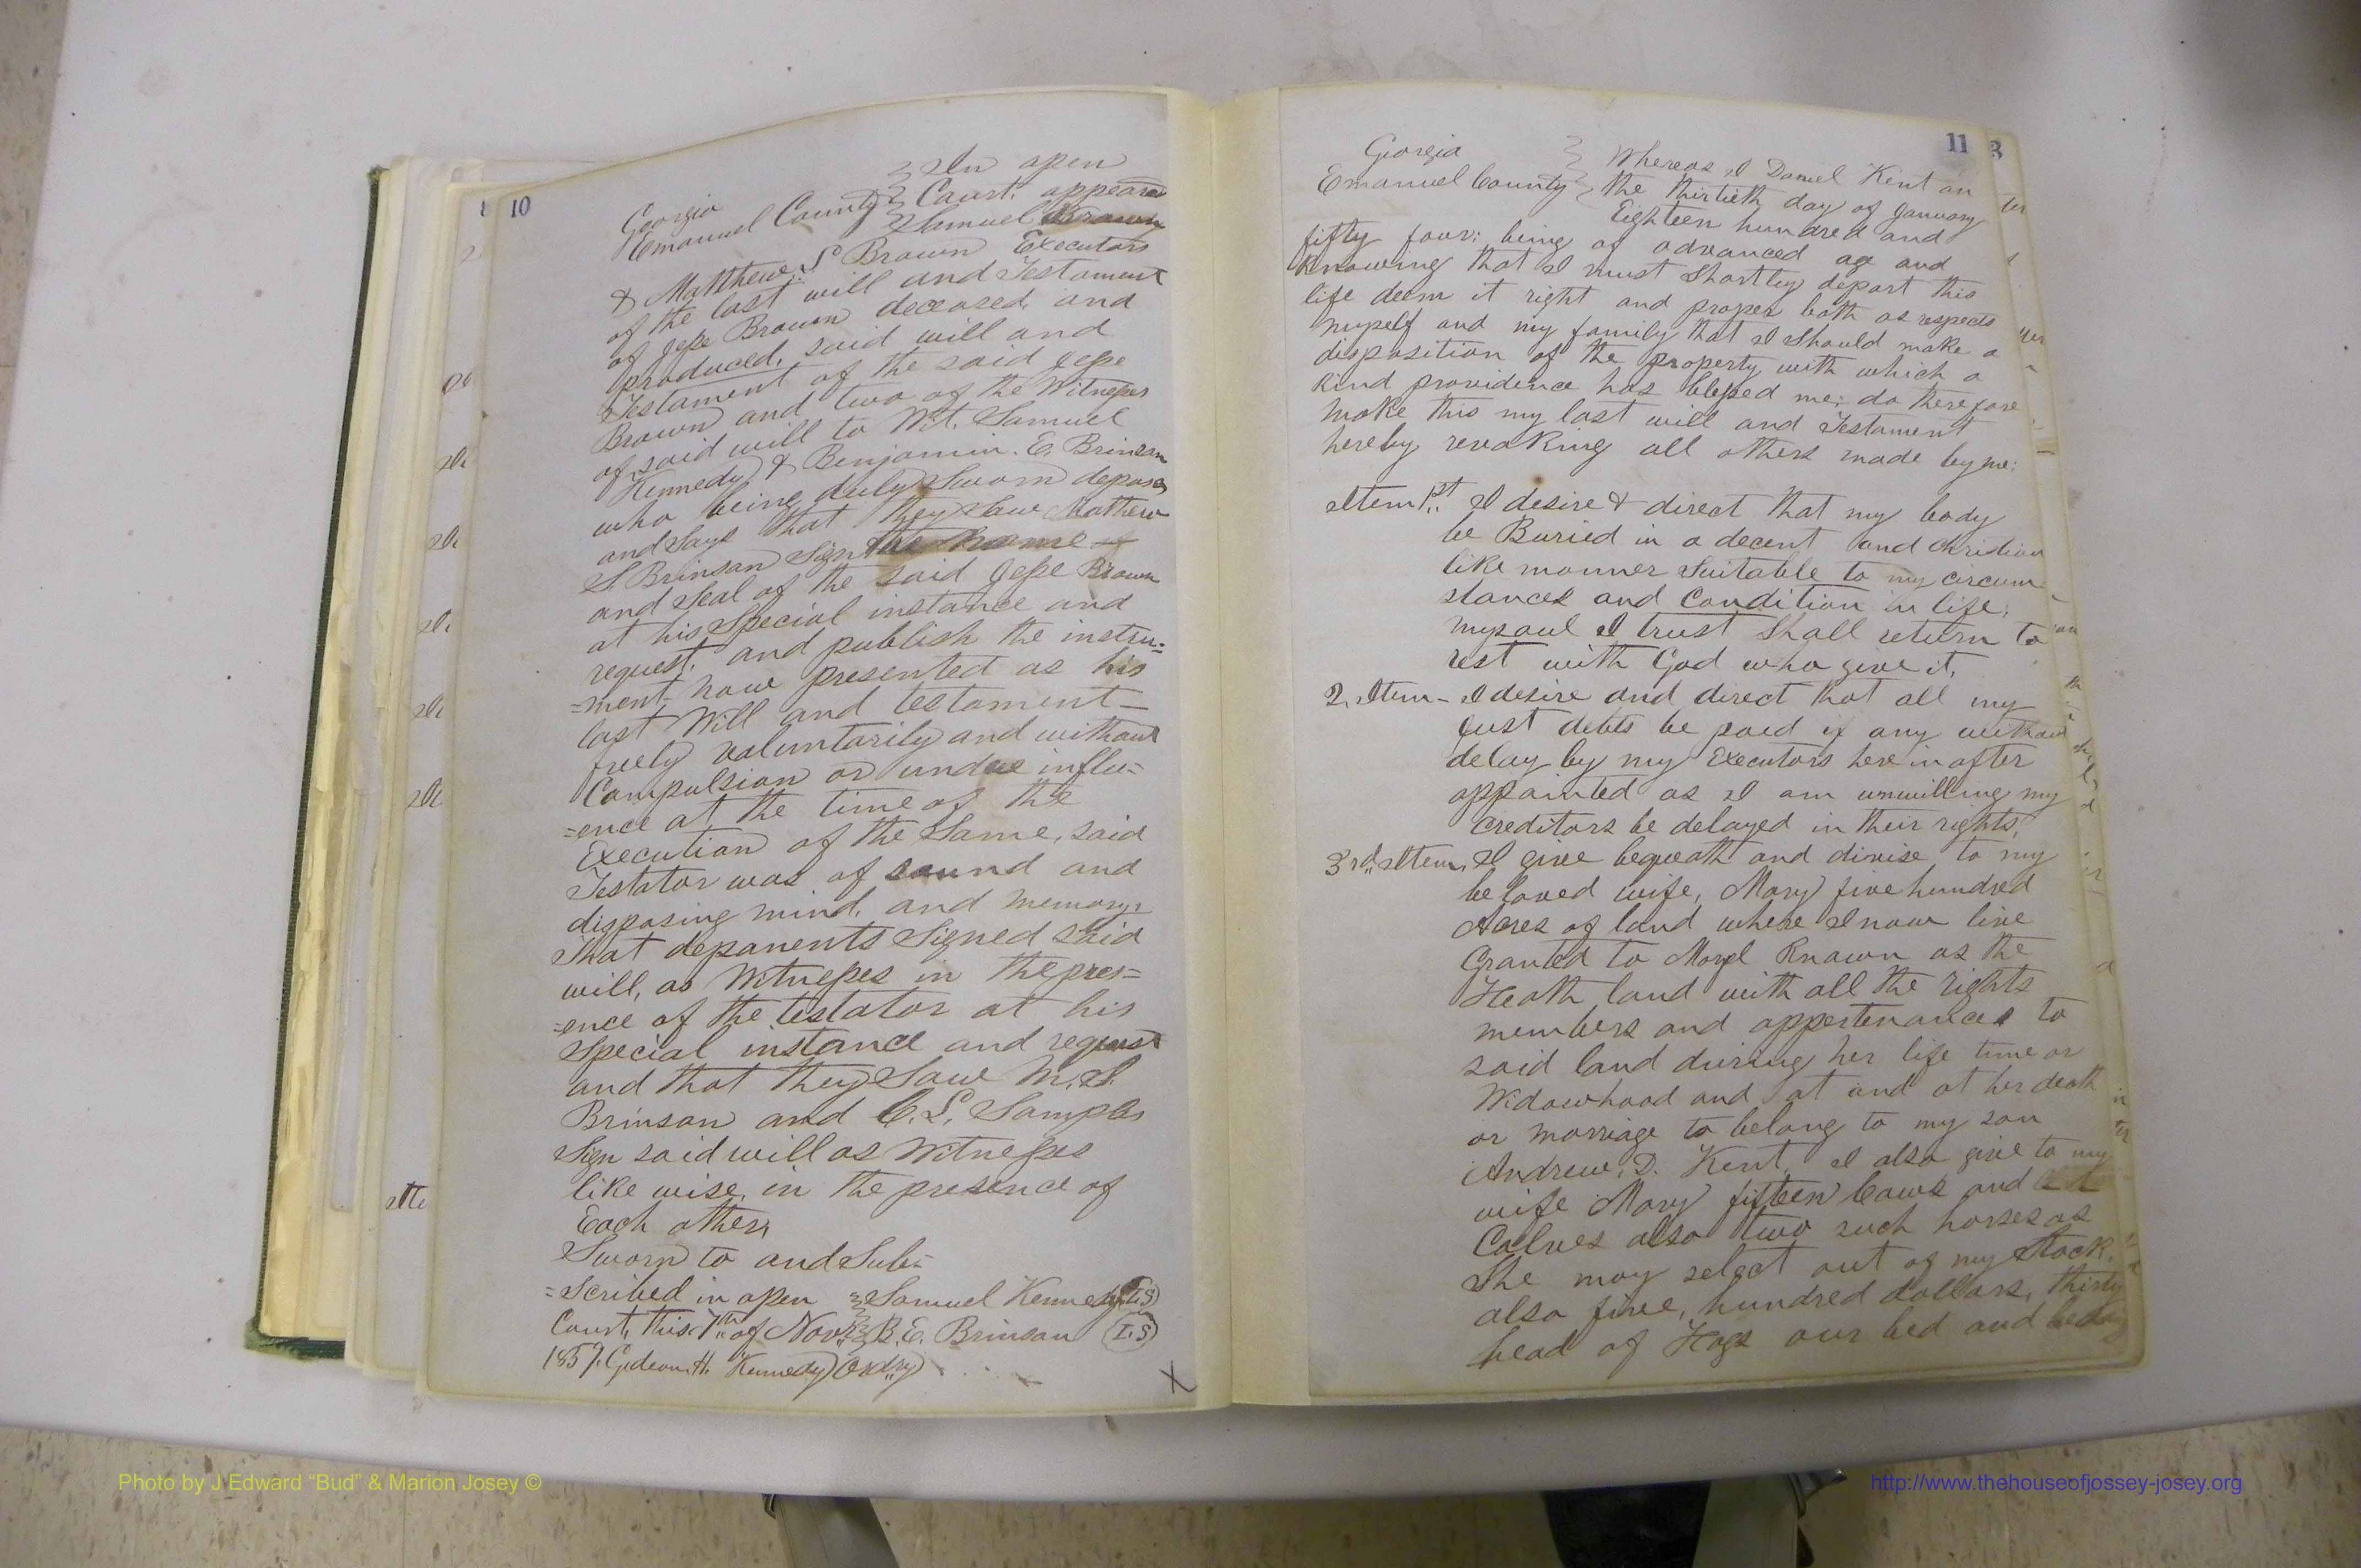 10
In open
Georgia } Court, appeared
Emanuel County } Samuel Brown
& Matthew S Brown Executors
of the last will and Testament
of Jesse Brown deceased, and
produced, said will and
Testament of the said Jesse
Brown and two of the Witnesses
of said will to Wit. Samuel
Kennedy & Benjamin. E. Brinson
who being duly Sworn deposes
and Says that they Saw Mathew
S Brinson Sign the Name
and Seal of the said Jesse Brown
at his Special instance and
request, and publish the instru=
=ment, now presented as his
last Will and testament—
freely voluntarily and without
Compulsion or undue influ=
=ence at the time of the
Execution of the Same, said
Testator was of sound and
disposing mind, and memory:
That deponents Signed said
will, as Witnesses in the pres=
=ence of the testator at his
Special instance and request
and that they Saw M. S.
Brinson and C. S. Samples
Sign said will as Witnesses
like wise, in the presence of
Each other,
Sworn to and Sub=
=scribed in open } Samuel Kennedy (L.S)
Court, this 7th of Novr } B. E. Brinson (L.S)
1857. Gideon. H. Kennedy Ordry
11
Georgia } Whereas, I Daniel Kent on
Emanuel County } the thirtieth day of January
Eighteen hundred and
fifty four: being of advanced age and
Knowing that I must Shortly depart this
life deem it right and proper both as respects
myself and my family that I Should make a
disposition of the property with which a
Kind providence has blessed me: do therefore
make this my last will and Testament
hereby revoking all others made by me:
Item 1st I desire & direct that my body
be Buried in a decent and Christian
like manner Suitable to my circum
stances and Condition in life,
my soul I trust Shall return to
rest with God who give it,
2, Item— I desire and direct that all my
Just debts be paid if any without
delay by my Executors here in after
appointed as I am unwilling my
Creditors be delayed in their rights,
3rd Item, I give bequeath and divise to my
beloved wife, Mary five hundred
Acres of land where I now live
Granted to Known as the
Heath land with all the rights
members and appertenances to
said land during her life time or
Widowhood and at and at her death
or marriage to belong to my son
Andrew. D. Kent, I also give to my
wife Mary fifteen Cows and
Calves also two such horses as
She may select out of my Stock.
also five, hundred dollars, thirty
head of Hogs our bed and beding
Photo by J Edward “Bud” & Marion Josey ©
http://www.thehouseofjossey-josey.org